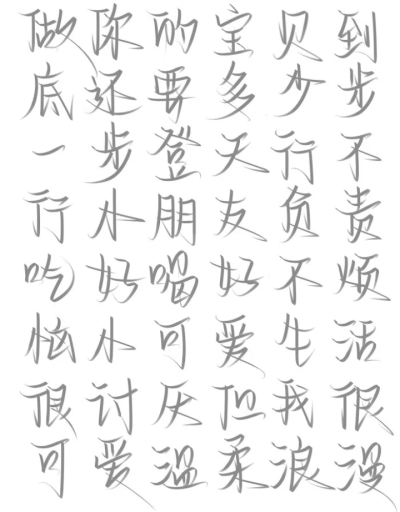 做你的宝贝到
底还要多少步
一步登天行不
行小朋友负责
吃好喝好不烦
恼小可爱生活
很讨厌但我很
可爱温柔浪漫